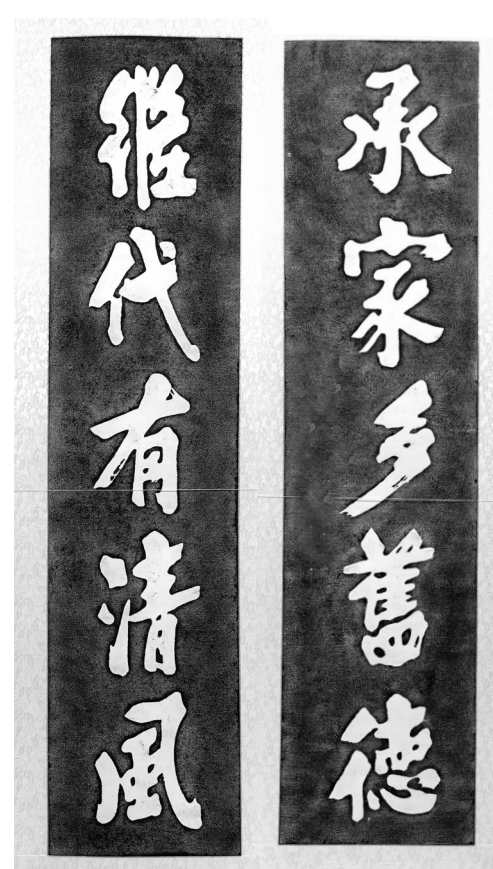 承家多舊德
继代有清風